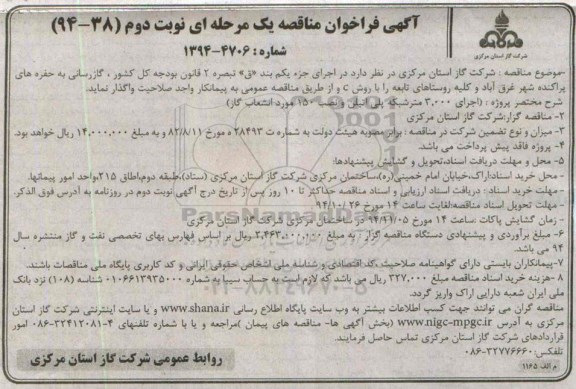 آگهی فراخوان مناقصه یک مرحله ای نوبت دوم (۳۸-۹۴)
شماره: ۴۷۰۶-۱۳۹۴
شرکت گاز استان مرکزی
۱-موضوع مناقصه : شرکت گاز استان مرکزی در نظر دارد در اجرای جزء یکم بند «ق» تبصره ۲ قانون بودجه کل کشور ، گازرسانی به حفره های
پراکنده شهر غرق آباد و کلیه روستاهای تابعه را با روش c و از طریق مناقصه عمومی به پیمانکار واجد صلاحیت واگذار نماید.
شرح مختصر پروژه : (اجرای ۳,۰۰۰ مترشبکه پلی اتیلن و نصب ۱۵۰ مورد انشعاب گاز)
۲- مناقصه گزار:شرکت گاز استان مرکزی
۳- میزان و نوع تضمین شرکت در مناقصه : برابر مصوبه هیئت دولت به شماره ت ۲۸۴۹۳ ه مورخ ۸۲/۸/۱۱ و به مبلغ ۱۴,۰۰۰,۰۰۰ ریال خواهد بود.
۴- پروژه فاقد پیش پرداخت می باشد.
۵- محل و مهلت دریافت اسناد،تحویل و گشایش پیشنهادها:
- محل خرید اسناد:اراک،خیابان امام خمینی(ره)،ساختمان مرکزی شرکت گاز استان مرکزی (ستاد)،طبقه دوم،اطاق ۲۱۵،واحد امور پیمانها.
- مهلت خرید اسناد : دریافت اسناد ارزیابی و اسناد مناقصه حداکثر تا ۱۰ روز پس از تاریخ درج آگهی نوبت دوم در روزنامه به آدرس فوق الذکر.
- مهلت تحویل اسناد مناقصه:لغایت ساعت ۱۴ مورخ ۹۴/۱۰/۲۶
- زمان گشایش پاکات :ساعت ۱۴ مورخ ۹۴/۱۱/۰۵ ساختمان مرکزی شرکت گاز استان مرکزی
۶- مبلغ برآوردی و پیشنهادی دستگاه مناقصه گزار : به مبلغ ۲,۴۶۳,۰۰۰,۰۰۰ ریال بر اساس فهارس بهای تخصصی نفت و گاز منتشره سال
۹۴ می باشد.
۷-پیمانکاران بایستی دارای گواهینامه صلاحیت ،کد اقتصادی و شناسه ملی اشخاص حقوقی ایرانی و کد کاربری پایگاه ملی مناقصات باشند.
۸-هزینه خرید اسناد مناقصه مبلغ ۳۲۷,۰۰۰ ریال می باشد که لازم است به حساب سیبا به شماره ۰۱۰۶۶۱۳۹۳۵۰۰۰ شناسه (۱۰۸) نزد بانک
ملی ایران شعبه دارایی اراک واریز گردد.
مناقصه گران می توانند جهت کسب اطلاعات بیشتر به وب سایت پایگاه اطلاع رسانی www.shana.ir و یا سایت اینترنتی شرکت گاز استان
مرکزی به آدرس www.nigc-mpgc.ir (بخش آگهی ها- مناقصه های پیمان )مراجعه و یا با شماره تلفنهای ۴-۳۲۴۱۲۰۸۱-۰۸۶ امور
قراردادهای شرکت گاز استان مرکزی تماس حاصل فرمایند.
تلفکس:۳۲۷۷۶۶۶۰-۰۸۶
روابط عمومی شرکت گاز استان مرکزی
م الف ۱۱۶۵